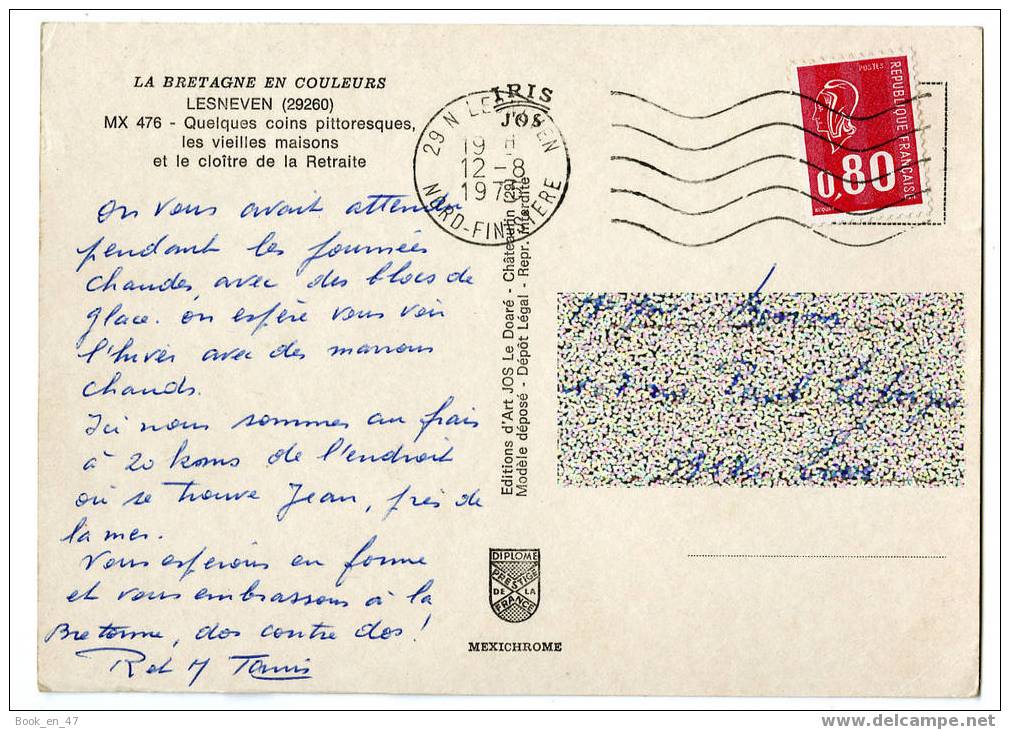 LA BRETAGNE EN COULEURS
LESNEVEN (29260)
MX 476 - Quelques coins pittoresques,
les vieilles maisons
et le cloître de la Retraite
on vous avait attendu
pendant les journées
chaudes, avec des blocs de
glace. on espère vous voir
l'hiver avec des marrons
chauds.
Ici nous sommes au frais
à 20 kms de l'endroit
où se trouve Jean, près de
la mer.
Vous espérons en forme
et vous embrassons à la
Bretonne, dos contre dos!
R et M
IRIS
JOS
29 N LESNEVEN
19 H
12-8
197
NORD-FINISTERE
Editions d'Art JOS Le Doaré - Châteaulin (29)
Modèle déposé - Dépôt Légal - Repr. Interdite
DIPLOME
PRESTIGE
DE LA
FRANCE
MEXICHROME
POSTES
REPUBLIQUE FRANÇAISE
0,80
Book_en_47
www.delcampe.net